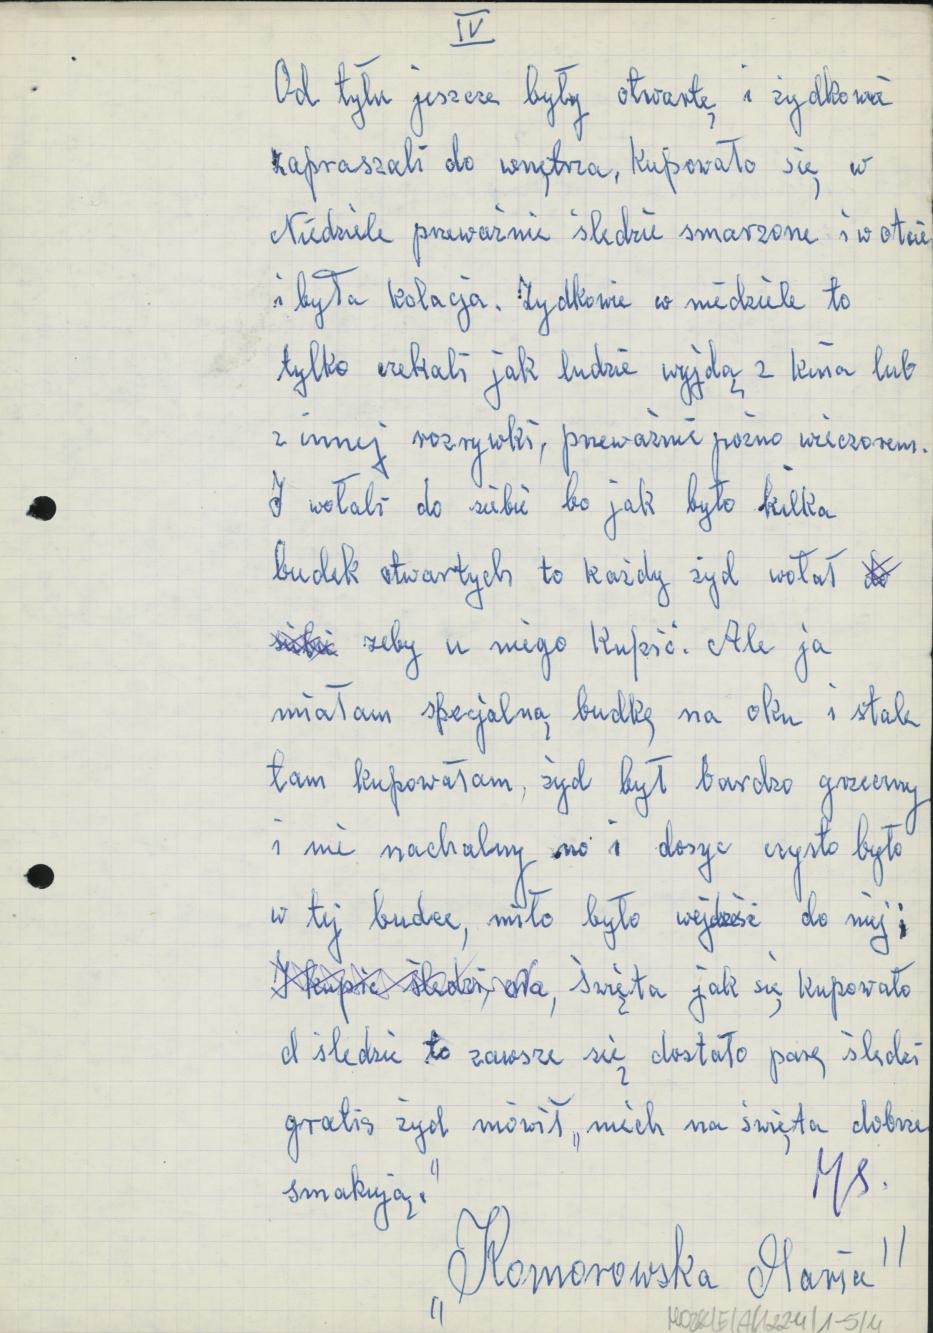 IV
Od tyłu jeszcze były otwarte i żydkowie
zapraszali do wnętrza, Kupowało się w
Niedziele przeważnie śledzie smarzone i w occie
i była kolacja. Żydkowie w niedziele to
tylko czekali jak ludzie wyjdą z kina lub
z innej rozrywki, przeważnie pożno wieczorem.
I wołali do siebie bo jak było kilka
budek otwartych to każdy żyd wołał do
siebie zeby u niego Kupić. Ale ja
miałam specjalną budkę na oku i stale
tam kupowałam, żyd był bardzo grzeczny
i nie nachalny no i dosyc czysto było
w tej budce, miło było wejść do niej;
I kupić śledzi, Na, święta jak się kupowało
śledzie to zawsze się dostało parę śledzi
gratis żyd mówił „niech na święta dobrze
smakują."
MS.
„Komorowska Maria"